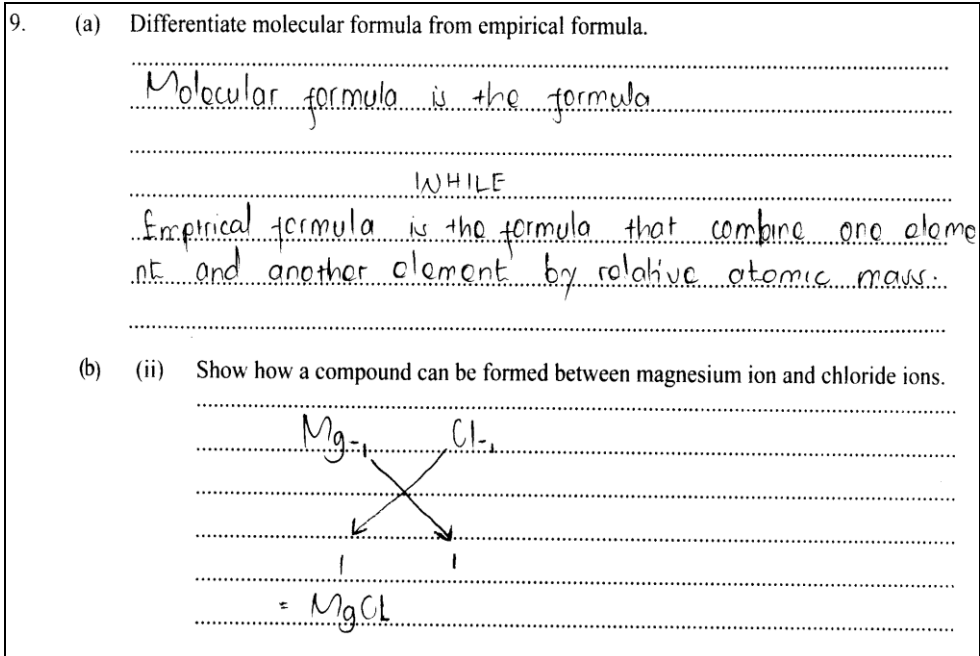 9. (a) Differentiate molecular formula from empirical formula.
Molecular formula is the formula
WHILE
Emprical formula is the formula that combine one eleme
nt and another element by relative atomic mass.
(b) (ii) Show how a compound can be formed between magnesium ion and chloride ions.
Mg-1 Cl-1
1 1
= MgCl